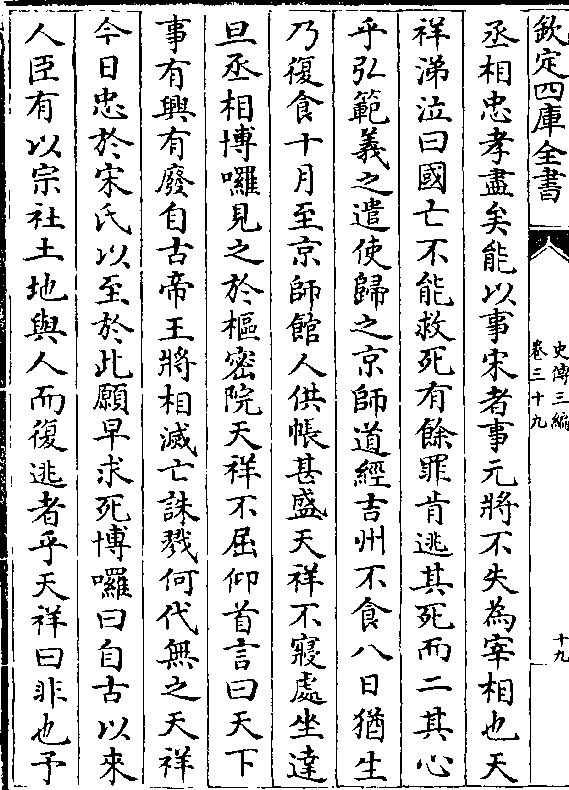 欽定四庫全書
史傳三編
卷三十九
十九
丞相忠孝盡矣能以事宋者事元將不失為宰相也天
祥涕泣曰國亡不能救死有餘罪肯逃其死而二其心
乎弘範義之遣使歸之京師道經吉州不食八日猶生
乃復食十月至京師館人供帳甚盛天祥不寢處坐達
旦丞相博囉見之於樞密院天祥不屈仰首言曰天下
事有興有廢自古帝王將相滅亡誅戮何代無之天祥
今日忠於宋氏以至於此願早求死博囉曰自古以來
人臣有以宗社土地與人而復逃者乎天祥曰非也予